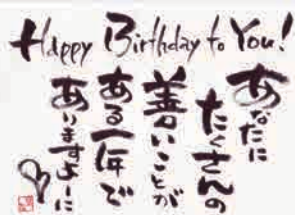 Happy Birthday to You!
あなたに
たくさんの
善いことが
ある一年で
ありますよーに